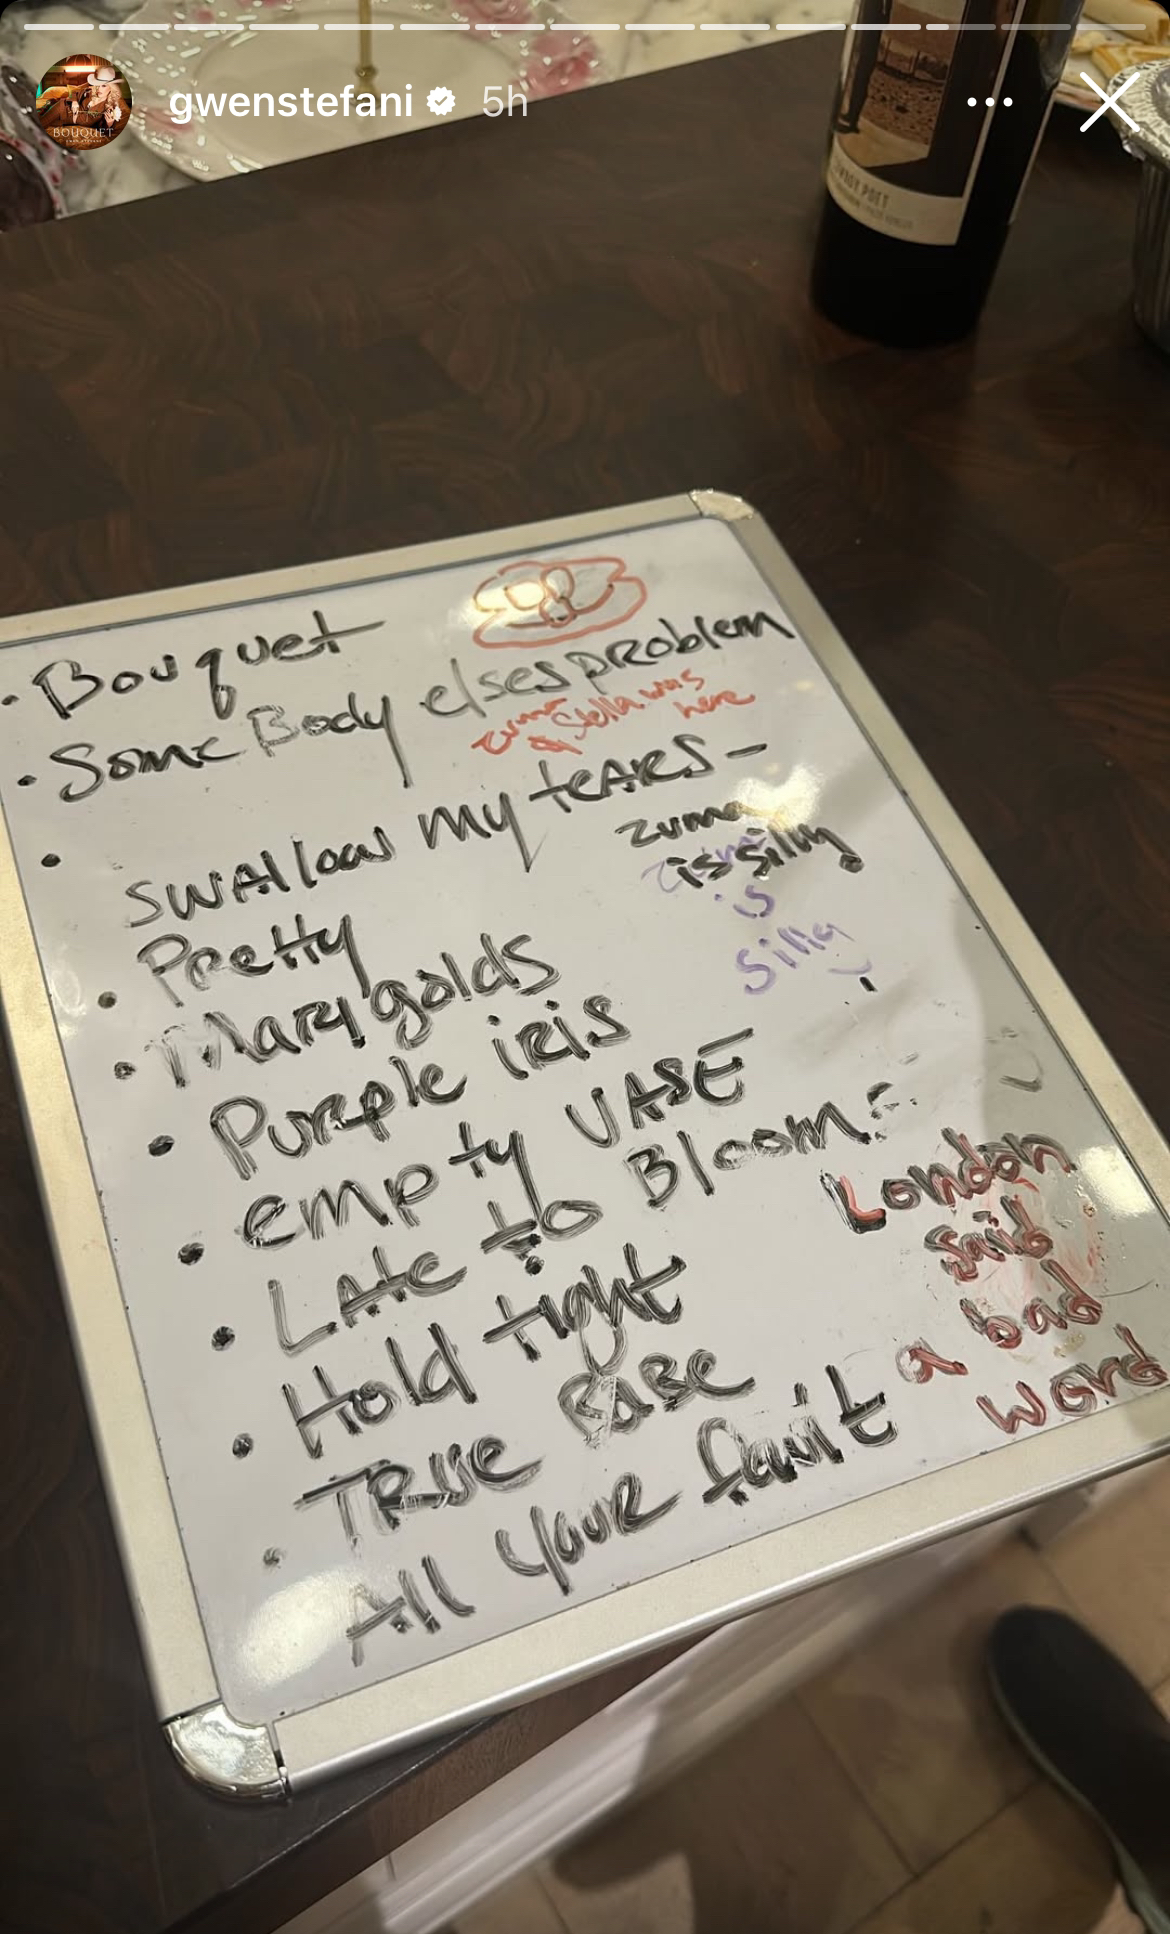 gwenstefani 5h
BOUQUET
POET
• Bouquet
• Some Body elses problem
Zuma & Stella was
here
• SWAllow My teARS -
zuma
is silly.
Zuma
is
silly
• Pretty
• MARYgolds
• Purple iRis
• empty VASE
• LAte to Bloom
• Hold tight
• TRUE BABE
• All youR fault
London
said
a bad
word